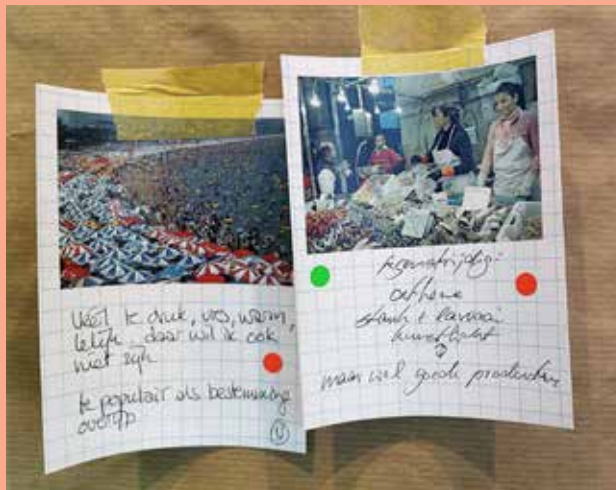 Veel te druk, vies, warm,
lelijk, daar wil ik ook
niet zijn
te populair als bestemming
overtip
U
stank + lawaai
kunstlicht
maar wel goede producten